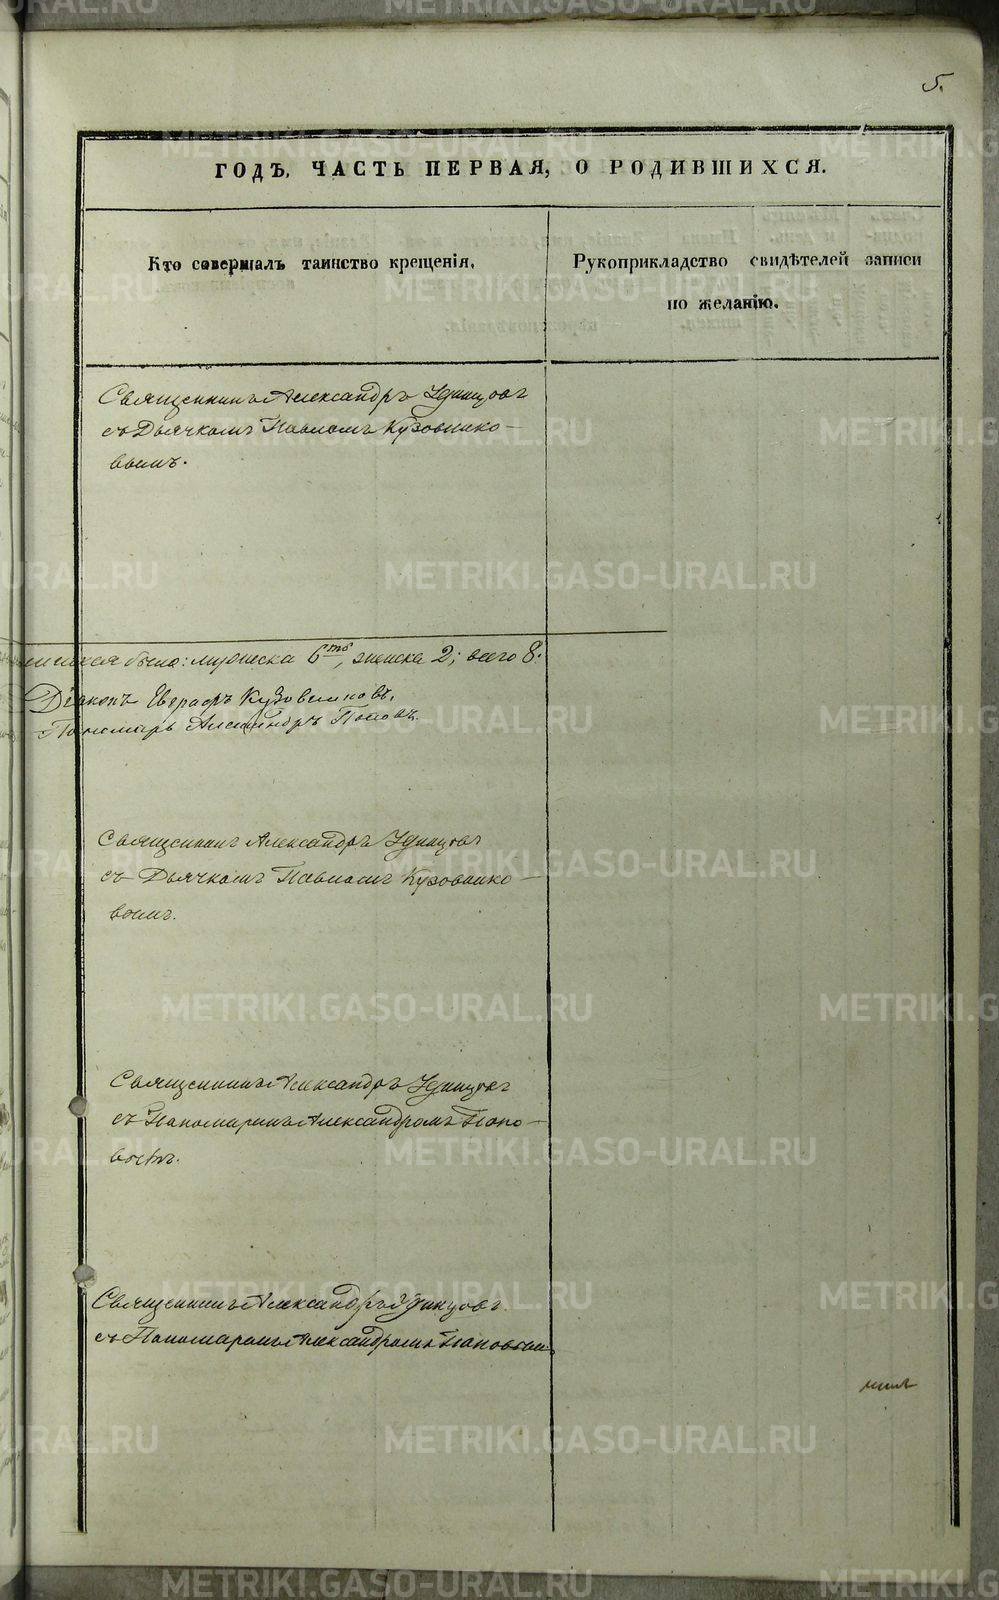 5.
ГОДЪ, ЧАСТЬ ПЕРВАЯ, О РОДИВШИХСЯ.
Кто совершалъ таинство крещенія.
Рукоприкладство свидѣтелей записи
по желанію.
Священникъ Александръ Удинцовъ
съ Дьячкомъ Павломъ Кузовнико-
вымъ.
было: мужеска 6ть, женска 2; всего 8.
Діаконъ Евграфъ Кузовниковъ.
Пономарь Александръ Поповъ.
Священникъ Александръ Удинцовъ
съ Дьячкомъ Павломъ Кузовнико-
вымъ.
Священникъ Александръ Удинцовъ
съ Пономаремъ Александромъ Попо-
вымъ.
Священникъ Александръ Удинцовъ
съ Пономаремъ Александромъ Поповымъ.
METRIKI.GASO-URAL.RU